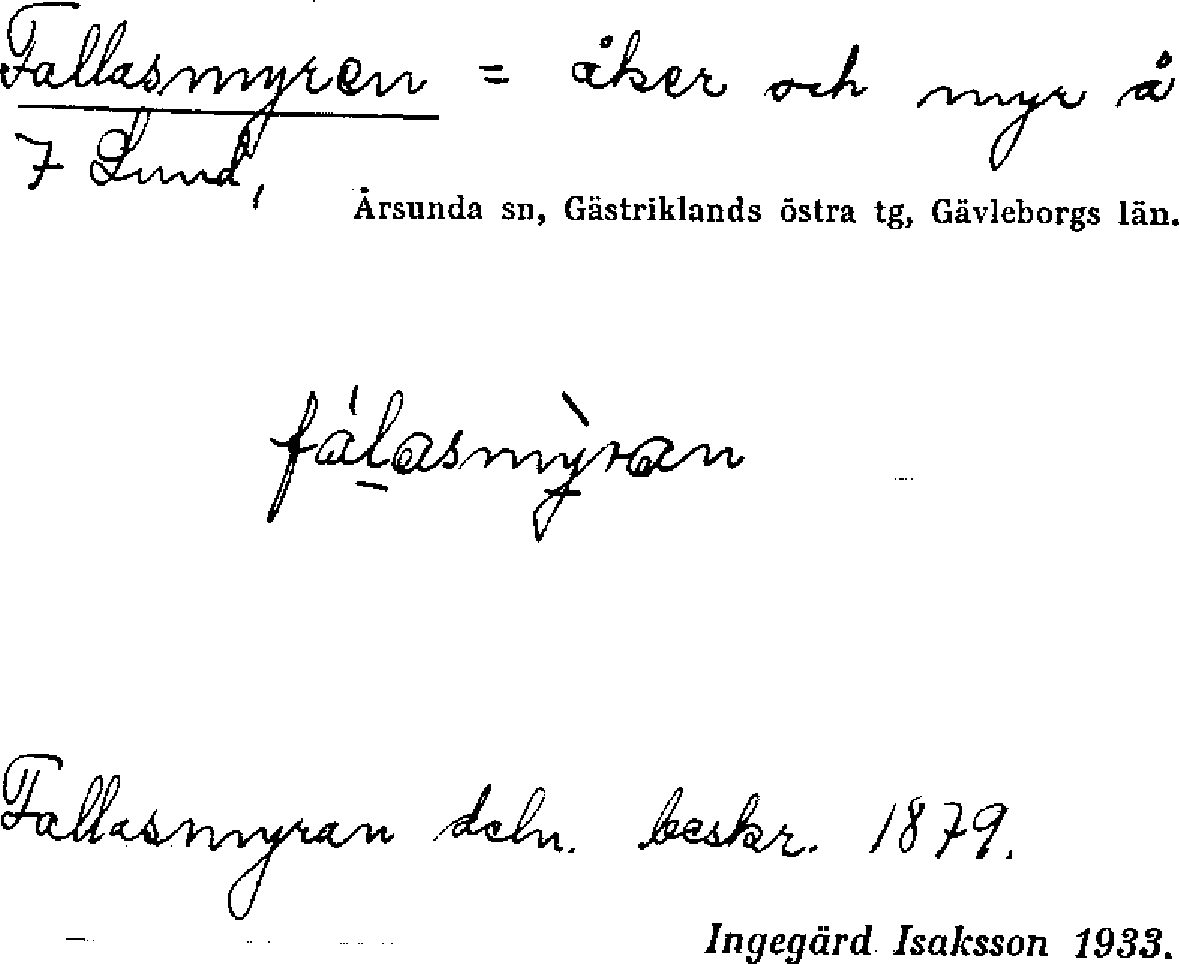 Fallasmyren = åker och myr å
7 Lund,
Årsunda sn, Gästriklands östra tg, Gävleborgs län.
fálasmỳran
Fallasmyran deln. beskr. 1879.
Ingegärd Isaksson 1933.